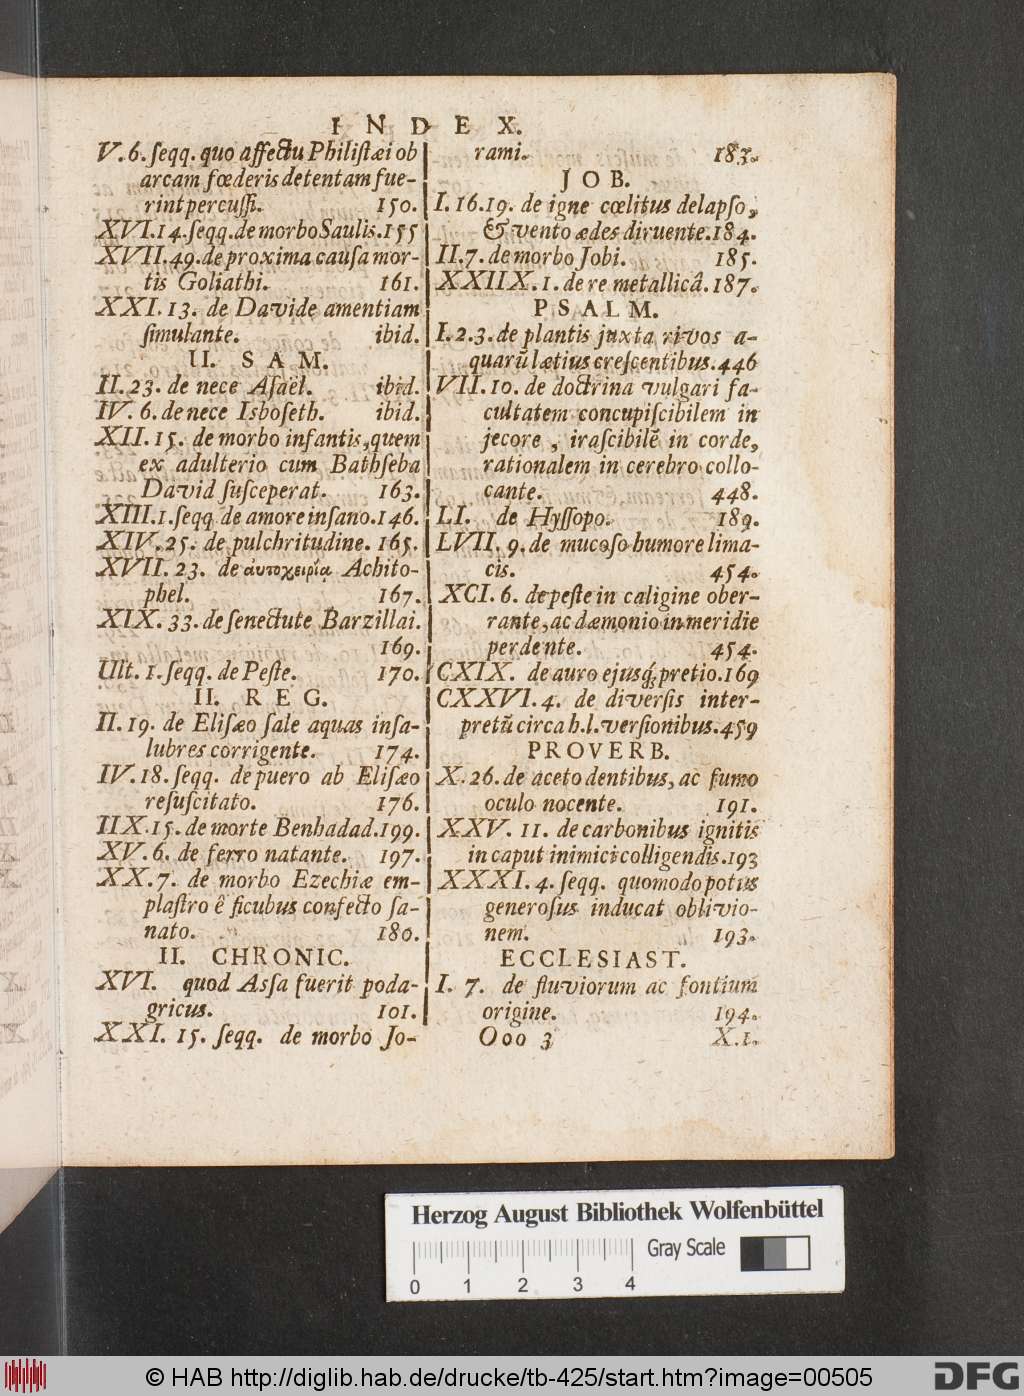 INDEX.
V. 6. ſeqq. quo affectu Philiſtæi ob
arcam fœderis detentam fue-
rint percuſſi. 150.
XVI. 14. ſeqq. de morbo Saulis. 155
XVII. 49. de proxima cauſa mor-
tis Goliathi. 161.
XXI. 13. de Davide amentiam
ſimulante. ibid.
II. SAM.
II. 23. de nece Aſaël. ibid.
IV. 6. de nece Isboſeth. ibid.
XII. 15. de morbo infantis, quem
ex adulterio cum Bathſeba
David ſuſceperat. 163.
XIII. 1. ſeqq de amore inſano. 146.
XIV. 25. de pulchritudine. 165.
XVII. 23. de αὐτοχειρίᾳ Achito-
phel. 167.
XIX. 33. de ſenectute Barzillai.
169.
Ult. 1. ſeqq. de Peſte. 170.
II. REG.
II. 19. de Eliſæo ſale aquas inſa-
lubres corrigente. 174.
IV. 18. ſeqq. de puero ab Eliſæo
reſuſcitato. 176.
IIX. 15. de morte Benhadad. 199.
XV. 6. de ferro natante. 197.
XX. 7. de morbo Ezechiæ em-
plaſtro ê ficubus confecto ſa-
nato. 180.
II. CHRONIC.
XVI. quod Asſa fuerit poda-
gricus. 101.
XXI. 15. ſeqq. de morbo Jo-
rami. 183.
JOB.
I. 16. 19. de igne cœlitus delapſo,
& vento ædes diruente. 184.
II. 7. de morbo Jobi. 185.
XXIIX. 1. de re metallicâ. 187.
PSALM.
I. 2. 3. de plantis juxta rivos a-
quarũ lætius creſcentibus. 446
VII. 10. de doctrina vulgari fa-
cultatem concupiſcibilem in
jecore, iraſcibilẽ in corde,
rationalem in cerebro collo-
cante. 448.
LI. de Hyſſopo. 189.
LVII. 9. de mucoſo humore lima-
cis. 454.
XCI. 6. de peſte in caligine ober-
rante, ac dæmonio in meridie
perdente. 454.
CXIX. de auro ejusq́; pretio. 169
CXXVI. 4. de diverſis inter-
pretũ circa h. l. verſionibus. 459
PROVERB.
X. 26. de aceto dentibus, ac fumo
oculo nocente. 191.
XXV. 11. de carbonibus ignitis
in caput inimici colligendis. 193
XXXI. 4. ſeqq. quomodo potus
generoſus inducat oblivio-
nem. 193.
ECCLESIAST.
I. 7. de fluviorum ac fontium
origine. 194.
Ooo 3 X. 1.
Herzog August Bibliothek Wolfenbüttel
0 1 2 3 4
Gray Scale
© HAB http://diglib.hab.de/drucke/tb-425/start.htm?image=00505
DFG